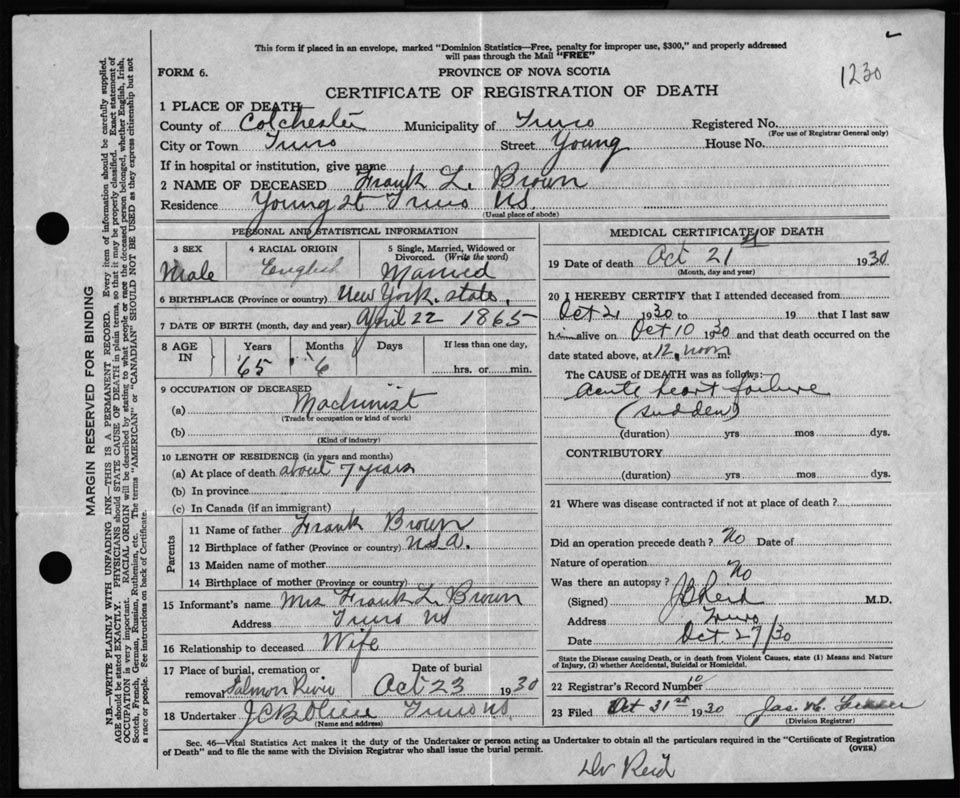 This form if placed in an envelope, marked "Dominion Statistics—Free, penalty for improper use, $300," and properly addressed
will pass through the Mail "FREE"
1230
FORM 6.
PROVINCE OF NOVA SCOTIA
CERTIFICATE OF REGISTRATION OF DEATH
1 PLACE OF DEATH
County of Colchester Municipality of Truro Registered No.
(For use of Registrar General only)
City or Town Truro Street Young House No.
If in hospital or institution, give name
2 NAME OF DECEASED Frank L. Brown
Residence Young St Truro NS.
(Usual place of abode)
PERSONAL AND STATISTICAL INFORMATION
3 SEX 4 RACIAL ORIGIN 5 Single, Married, Widowed or
Divorced. (Write the word)
Male English Married
6 BIRTHPLACE (Province or country) New York. state.
7 DATE OF BIRTH (month, day and year) April 22 1865
8 AGE IN Years Months Days If less than one day,
65 6 hrs. or min.
9 OCCUPATION OF DECEASED
(a) Machinist
(Trade or occupation or kind of work)
(b)
(Kind of industry)
10 LENGTH OF RESIDENCE (in years and months)
(a) At place of death about 7 years
(b) In province
(c) In Canada (if an immigrant)
Parents
11 Name of father Frank Brown
12 Birthplace of father (Province or country) U.S.A.
13 Maiden name of mother
14 Birthplace of mother (Province or country)
15 Informant's name Mrs Frank L. Brown
Address Truro NS
16 Relationship to deceased Wife
17 Place of burial, cremation or Date of burial
removal Salmon River Oct 23 1930
18 Undertaker Truro NS.
(Name and address)
MEDICAL CERTIFICATE OF DEATH
19 Date of death Oct 21st 1930
(Month, day and year)
20 I HEREBY CERTIFY that I attended deceased from
Oct 21 1930 to 19 that I last saw
him alive on Oct 10 1930 and that death occurred on the
date stated above, at 12, noon m
The CAUSE of DEATH was as follows:
acute heart failure
(sudden)
(duration) yrs mos dys.
CONTRIBUTORY
(duration) yrs mos dys.
21 Where was disease contracted if not at place of death?
Did an operation precede death? No Date of
Nature of operation
Was there an autopsy? No
(Signed) J B Reid M.D.
Address Truro
Date Oct 27/30
State the Disease causing Death, or in death from Violent Causes, state (1) Means and Nature
of Injury, (2) whether Accidental, Suicidal or Homicidal.
22 Registrar's Record Number
23 Filed Oct 31st 1930 Jas.
(Division Registrar)
Sec. 46—Vital Statistics Act makes it the duty of the Undertaker or person acting as Undertaker to obtain all the particulars required in the "Certificate of Registration
of Death" and to file the same with the Division Registrar who shall issue the burial permit.
(OVER)
Dr Reid
MARGIN RESERVED FOR BINDING
N.B.—WRITE PLAINLY WITH UNFADING INK—THIS IS A PERMANENT RECORD. Every item of information should be carefully supplied.
AGE should be stated EXACTLY. PHYSICIANS should STATE CAUSE OF DEATH in plain terms, so that it may be properly classified. Exact statement of
OCCUPATION is very important. RACIAL ORIGIN will be described by stating to what people or race the deceased person belonged, whether English, Irish,
Scotch, French, German, Russian, Ruthenian, etc. The terms "AMERICAN" or "CANADIAN" SHOULD NOT BE USED as they express citizenship but not
a race or people. See instructions on back of Certificate.